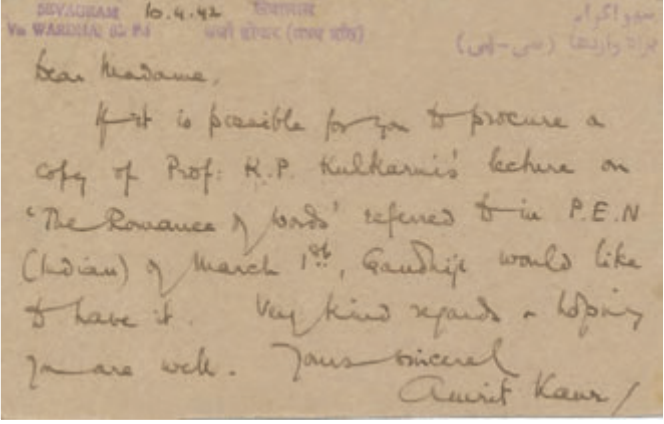 SEVAGRAM 10.4.42 सेवाग्राम سیواگرام
Via WARDHA, (C. P.) वर्धा होकर (मध्य प्रांत) براہ واردھا (سی-پی)
Dear Madame,
If it is possible for you to procure a
copy of Prof: K.P. Kulkarni's lecture on
'The Romance of Words' referred to in P.E.N
(Indian) of March 1st, Gandhiji would like
to have it. Very kind regards & hoping
you are well. Yours sincerely
Amrit Kaur /